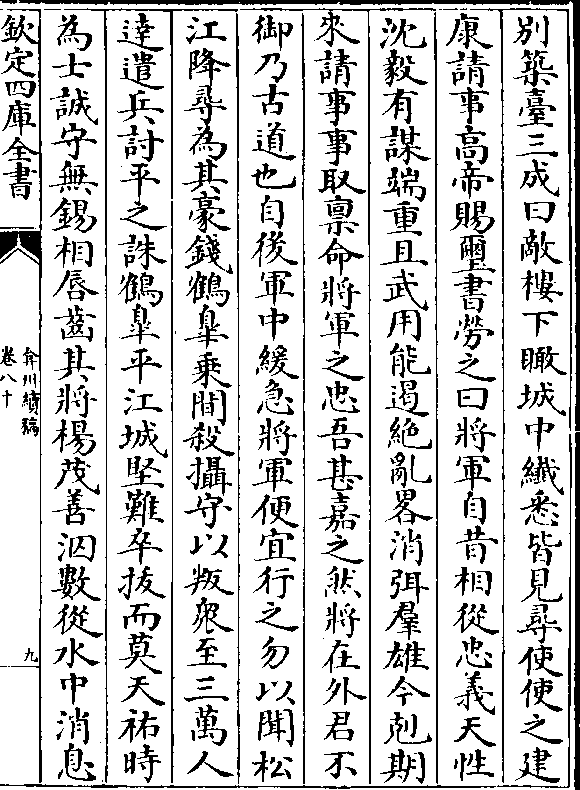 別築臺三成曰敵樓下瞰城中纖悉皆見尋使使之建
康請事髙帝賜璽書勞之曰將軍自昔相從忠義天性
沈毅有謀端重且武用能遏絶亂畧消弭羣雄今剋期
來請事事取禀命將軍之忠吾甚嘉之然將在外君不
御乃古道也自後軍中緩急將軍便宜行之勿以聞松
江降尋為其豪錢鶴臯乗間殺攝守以叛衆至三萬人
逹遣兵討平之誅鶴臯平江城堅難卒拔而莫天祐時
為士誠守無錫相唇齒其將楊茂善泅數從水中消息
欽定四庫全書
弇州續稿
卷八十
九